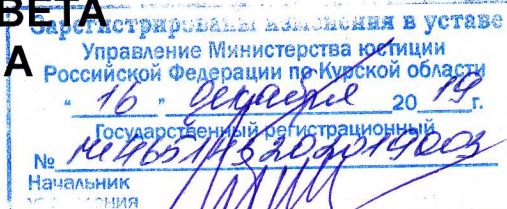 ВЕТА
А
Зарегистрированы изменения в уставе
Управление Министерства юстиции
Российской Федерации по Курской области
" 16 " декабря 2019 г.
Государственный регистрационный
№
Начальник